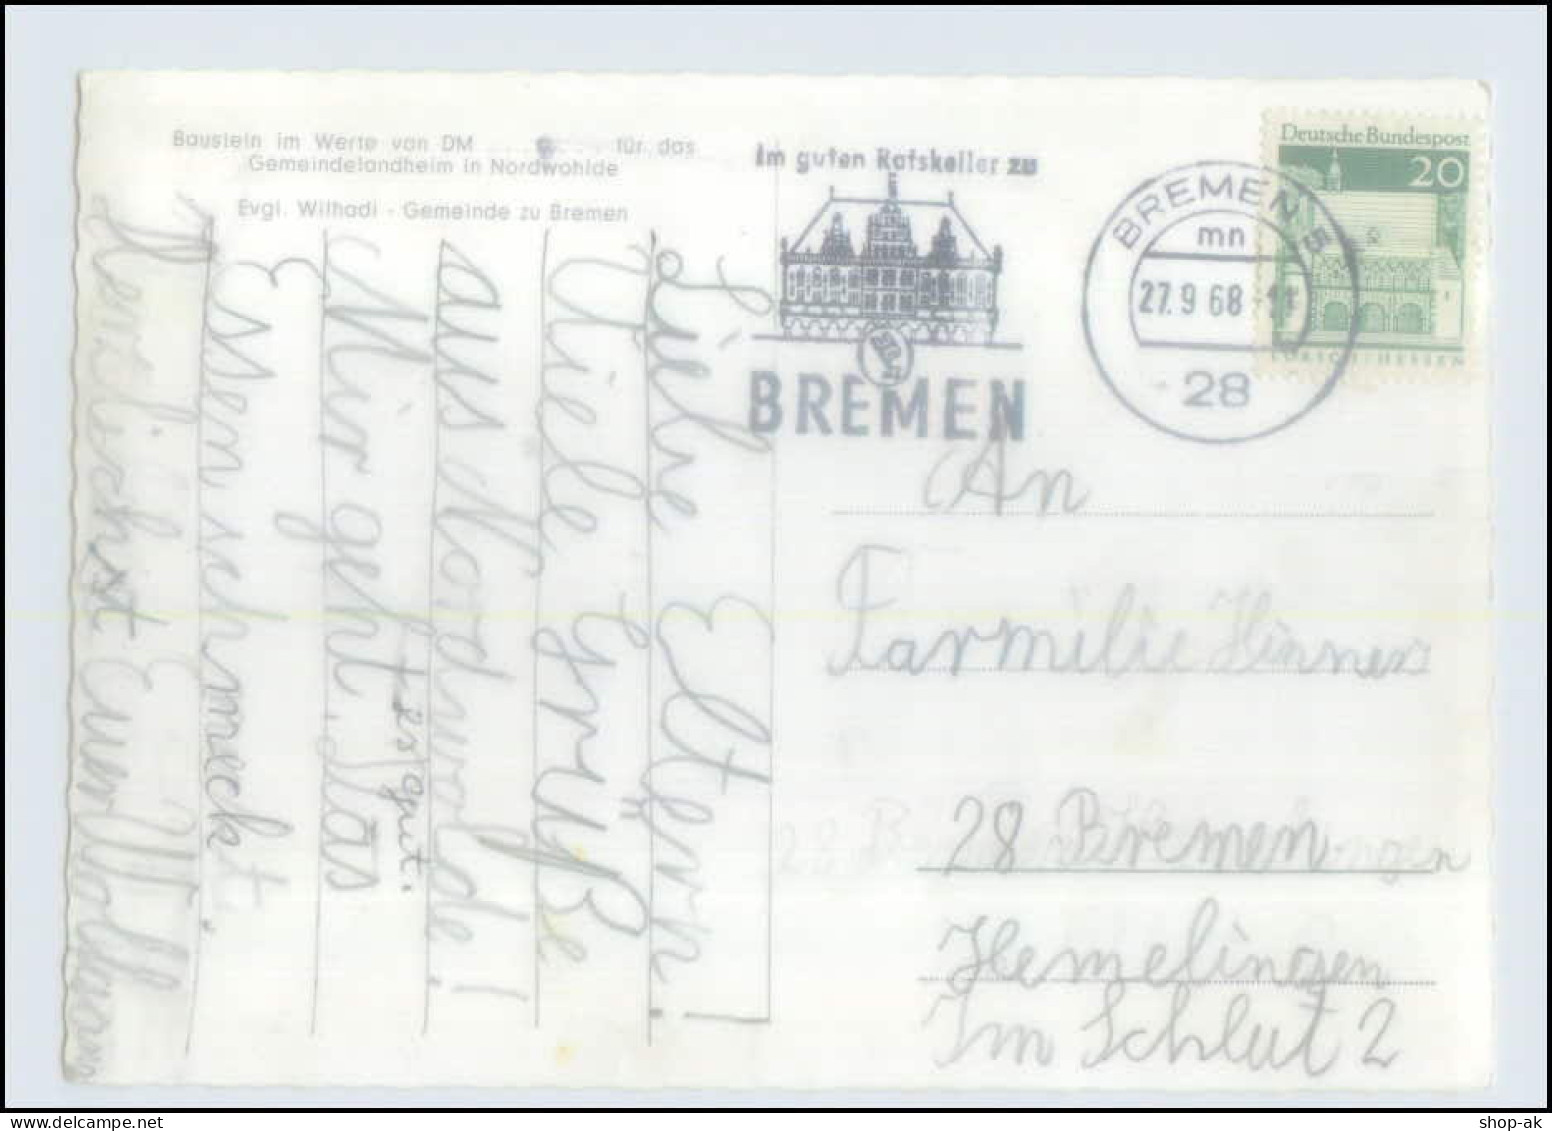 Baustein im Werte von DM für das
Gemeindelandheim in Nordwohlde
Evgl. Wilhadi - Gemeinde zu Bremen
Im guten Ratskeller zu
BREMEN
BREMEN 5
mn
27.9.68-11
28
Deutsche Bundespost
20
LORSCH/HESSEN
Liebe Eltern!
Viele Grüße
aus Nordwolde!
Mir geht es gut.
Das
Essen schmeckt.
Herzlichst Euer
An
Farmilie Hinners
28 Bremen
Hemelingen
Im Schlut 2
shop-ak